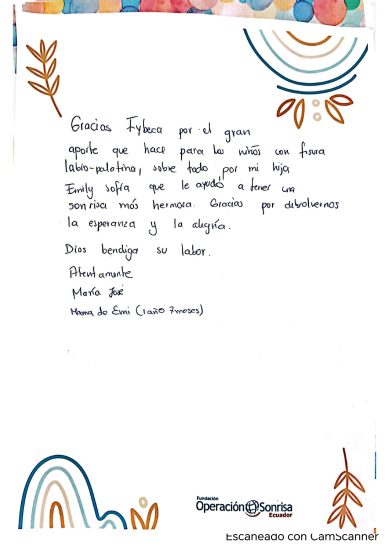 Gracias Fybeca por el gran
aporte que hace para los niños con fisura
labio-palatina, sobre todo por mi hija
Emily Sofía que le ayudó a tener una
sonrisa más hermosa. Gracias por debolvernos
la esperanza y la alegría.
Dios bendiga su labor.
Atentamente
María José
Mama de Emi (1 año 7 meses)
Fundación
Operación Sonrisa
Ecuador
Escaneado con CamScanner